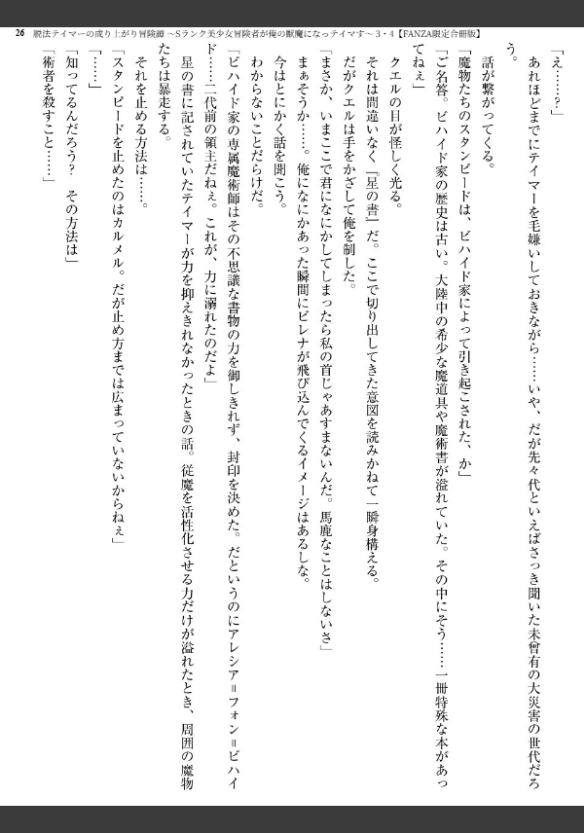 26 脱法テイマーの成り上がり冒険譚 ～Sランク美少女冒険者が俺の獣魔になっテイマす～ 3・4【FANZA限定合冊版】
「え……？」
あれほどまでにテイマーを毛嫌いしておきながら……いや、だが先々代といえばさっき聞いた未曾有の大災害の世代だろ
う。
話が繋がってくる。
「魔物たちのスタンピードは、ビハイド家によって引き起こされた、か」
「ご名答。ビハイド家の歴史は古い。大陸中の希少な魔道具や魔術書が溢れていた。その中にそう……一冊特殊な本があっ
てねぇ」
クエルの目が怪しく光る。
それは間違いなく『星の書』だ。ここで切り出してきた意図を読みかねて一瞬身構える。
だがクエルは手をかざして俺を制した。
「まさか、いまここで君になにかしてしまったら私の首じゃあすまないんだ。馬鹿なことはしないさ」
まぁそうか……。俺になにかあった瞬間にビレナが飛び込んでくるイメージはあるしな。
今はとにかく話を聞こう。
わからないことだらけだ。
「ビハイド家の専属魔術師はその不思議な書物の力を御しきれず、封印を決めた。だというのにアレシア＝フォン＝ビハイ
ド……二代前の領主だねぇ。これが、力に溺れたのだよ」
星の書に記されていたテイマーが力を抑えきれなかったときの話。従魔を活性化させる力だけが溢れたとき、周囲の魔物
たちは暴走する。
それを止める方法は……。
「スタンピードを止めたのはカルメル。だが止め方までは広まっていないからねぇ」
「……」
「知ってるんだろう？　その方法は」
「術者を殺すこと……」